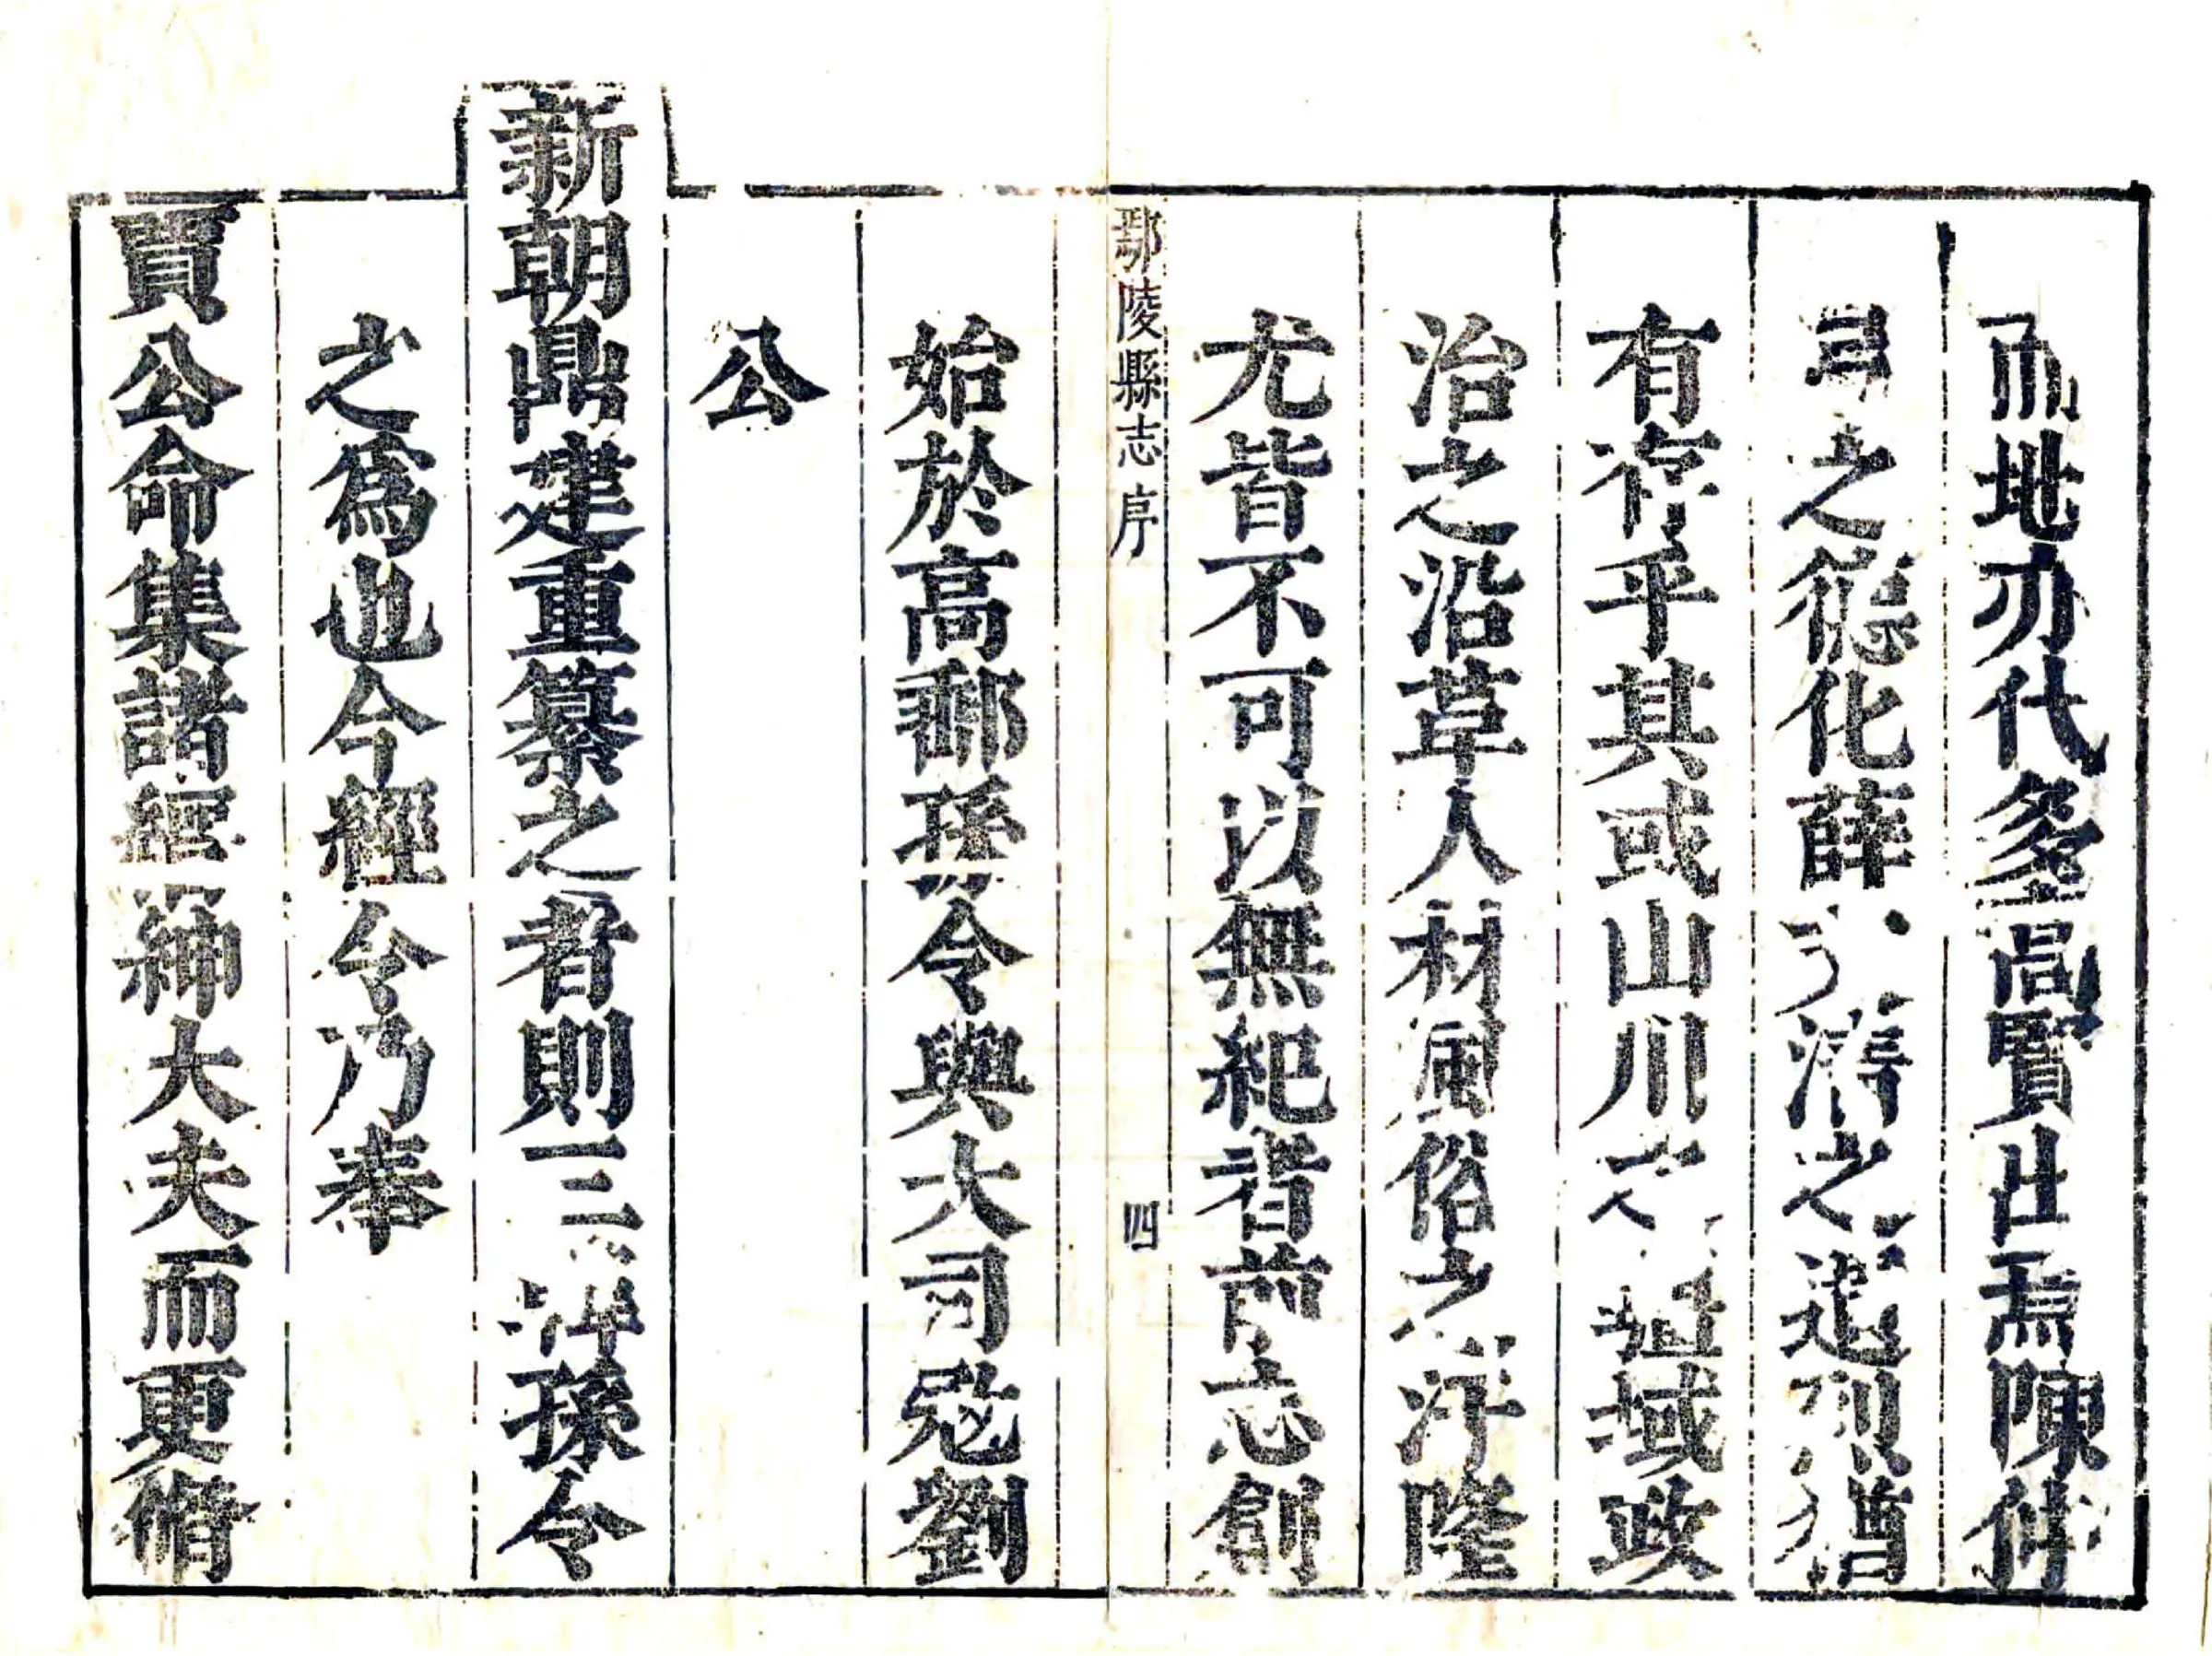 而地亦代多高賢出焉陳仲
弓之德化薛文清之遺烈猶
有存乎其或山川之疆域政
治之沿革人材風俗之汙隆
尤皆不可以無紀者前志創
鄢陵縣志 序 四
始於高郵孫令與大司寇劉
公
新朝鼎建重纂之者則三韓孫令
之爲也今經令乃奉
賈公命集諸縉紳大夫而更脩